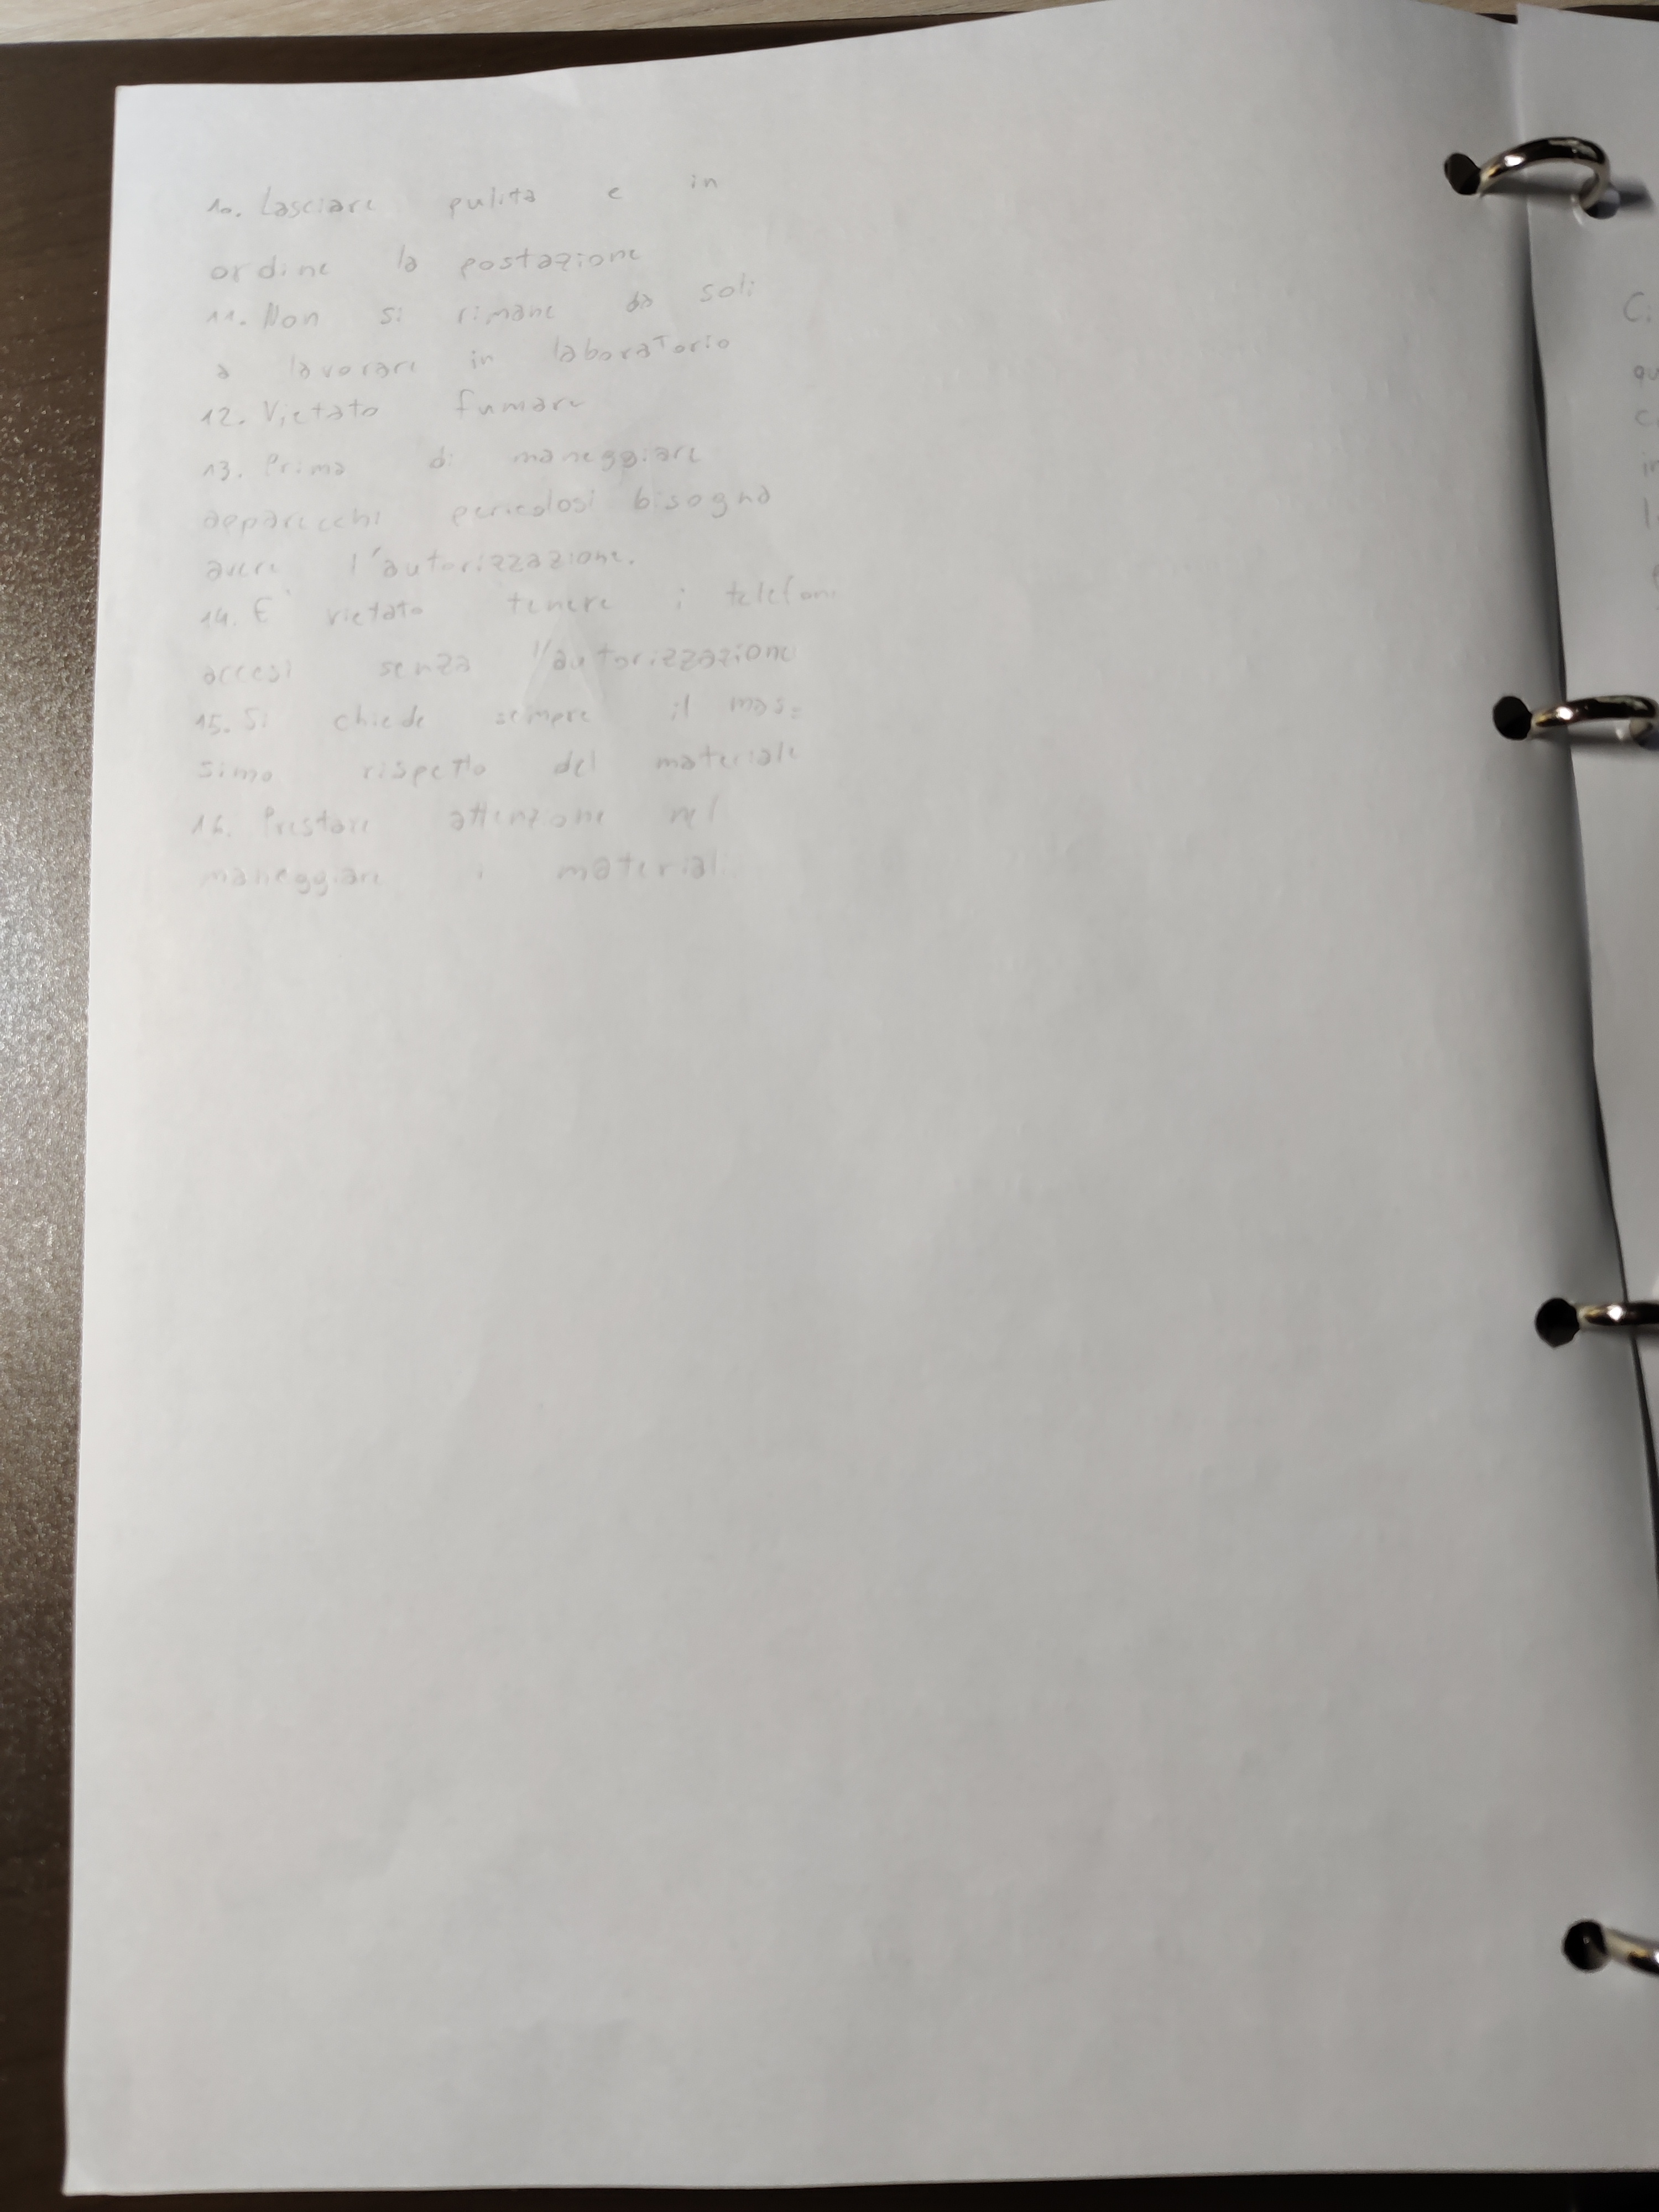 10. Lasciare pulita e in
ordine la postazione
11. Non si rimane da soli
a lavorare in laboratorio
12. Vietato fumare
13. Prima di maneggiare
apparecchi pericolosi bisogna
avere l'autorizzazione.
14. E' vietato tenere i telefoni
accesi senza l'autorizzazione
15. Si chiede sempre il mas=
simo rispetto del materiale
16. Prestare attenzione nel
maneggiare i materiali